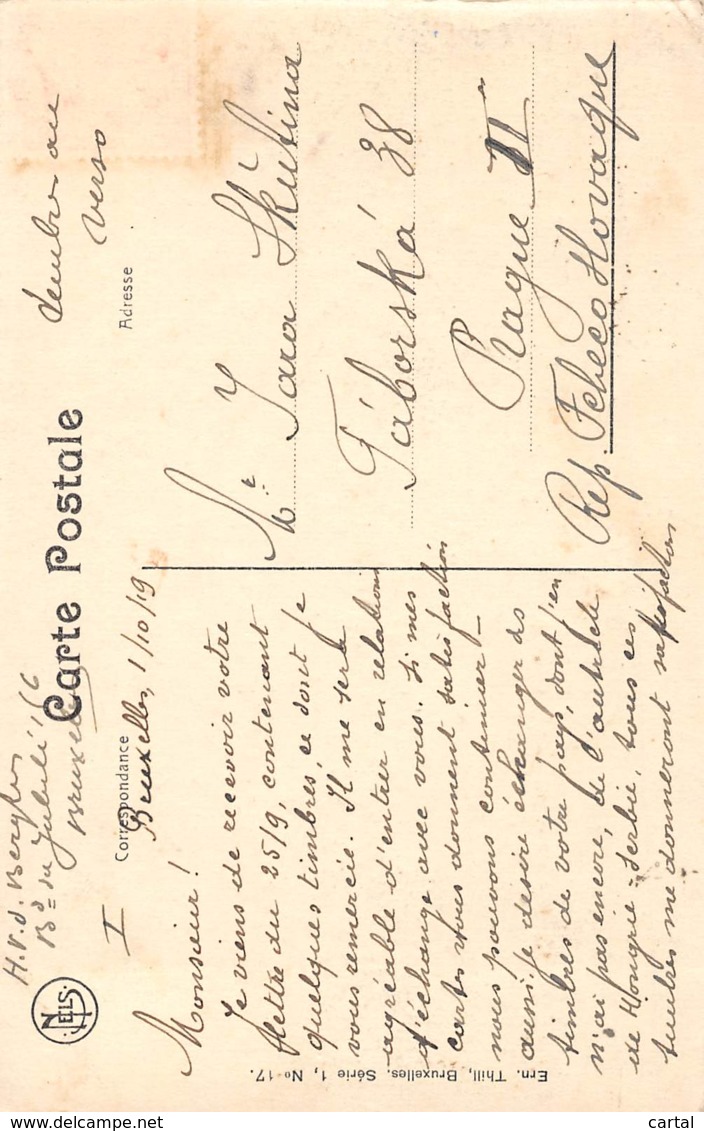 H.v.d. Berghe
Bd du Jubilé 166
Bruxelles
NELS
Carte Postale
Timbre au
verso
Correspondance
Adresse
I
Bruxelles, 1/10/19
Monsieur!
Je viens de recevoir votre
lettre du 25/9, contenant
quelques timbres, ce dont je
vous remercie. Il me sera
agréable d'entrer en relations
d'échange avec vous. Si mes
cartes vous donnent satisfaction
nous pouvons continuer_
aussi je désire échanger des
timbres de votre pays, dont j'en
n'ai pas encore, de l'Autriche
de Hongrie - Serbie, tous ces
timbres me donneront satisfaction
Mr Jara Skutina
Táborská 38
Prague II
Rep. Tcheco Slovaque
Ern. Thill, Bruxelles. Série 1, No 17.
cartal